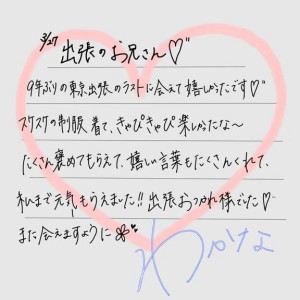 3/27
出張のお兄さん♡"
9年ぶりの東京出張のラストに会えて嬉しかったです♡"
スケスケの制服着て、きゃぴきゃぴ楽しかったな〜
たくさん褒めてもらえて、嬉しい言葉もたくさんくれて、
私まで元気もらえました!!出張おつかれ様でした♡
また会えますように
わかな